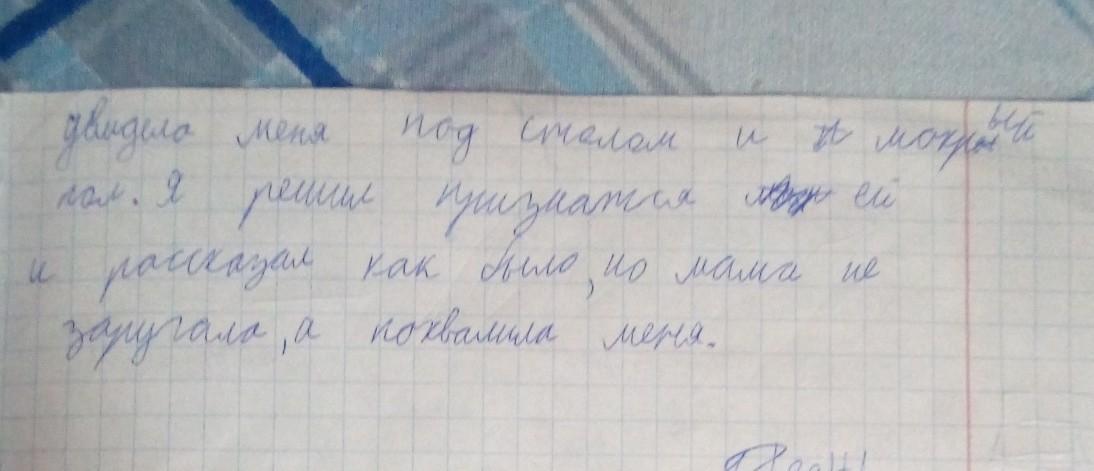 увидела меня под столом и мокрый
пол. Я решил признатся ей
и рассказал как было, но мама не
заругала, а похвалила меня.